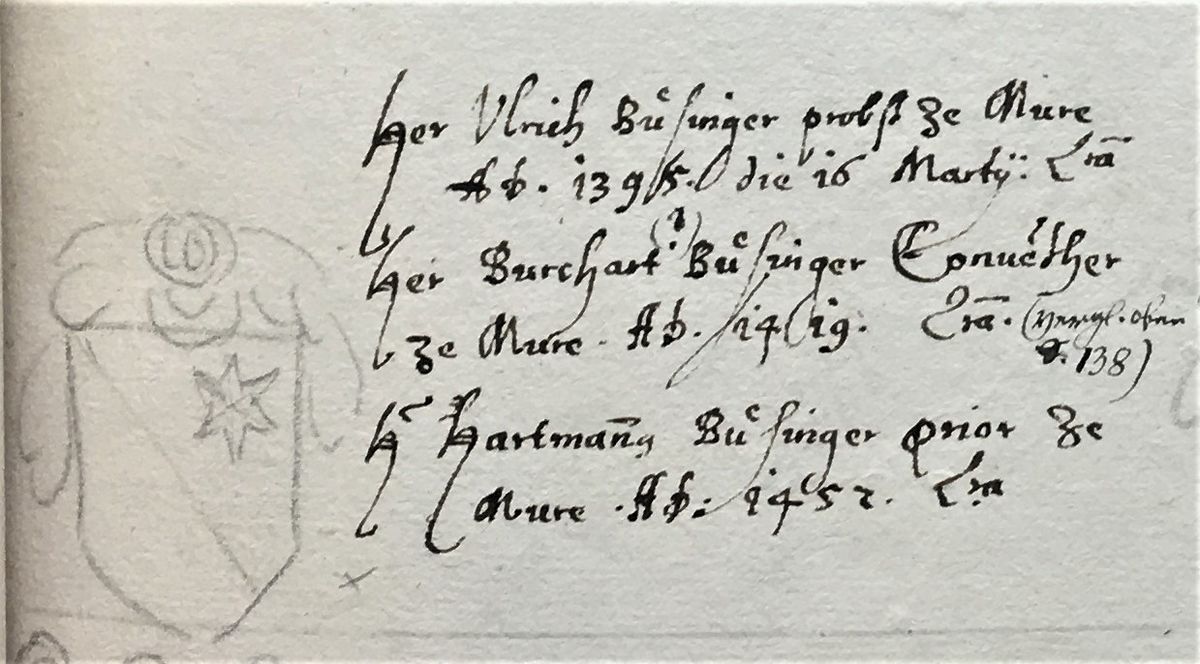 Her Vlrich Buͤsinger probst ze Mure
Ao. 1395. die 16 Martij. Lrã
(?)
Her Burchart Buͤsinger Conuether
ze Mure. Ao. 1419. Lrã. (vergl. oben
S. 138)
H̃ Hartmañ Buͤsinger prior ze
Mure. Ao: 1452. Lra